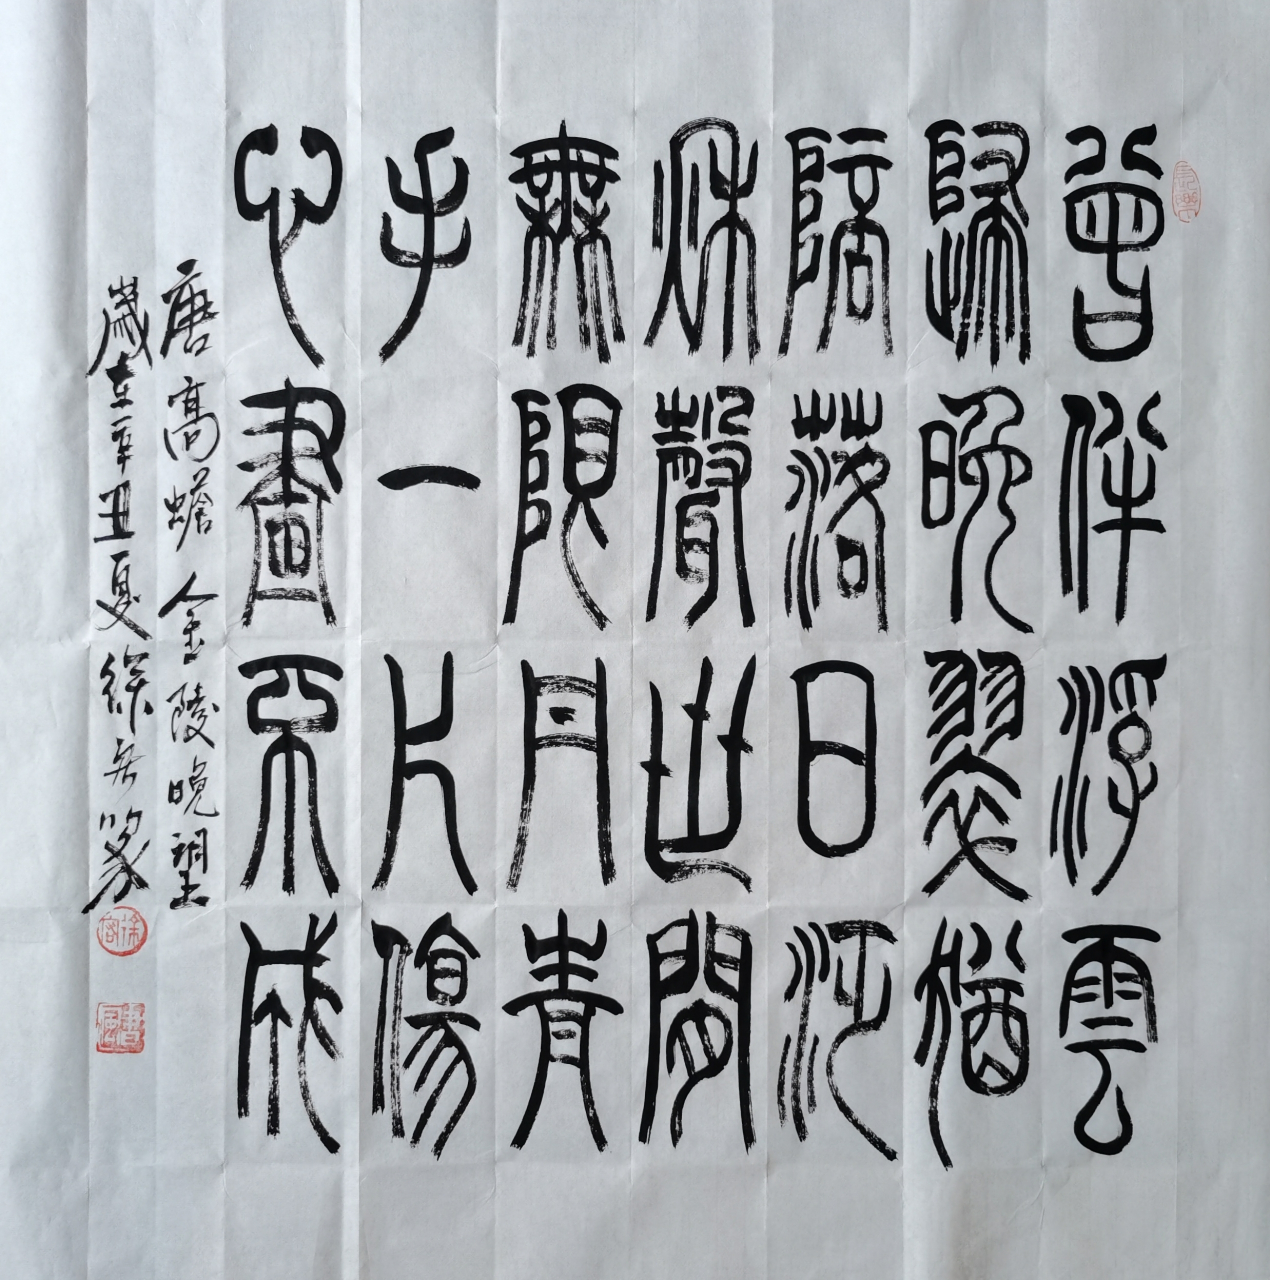 曾伴浮雲
歸晚翠猶
陪落日泛
秋聲世間
無限丹青
手一片傷
心畫不成
唐高蟾金陵晚望
歲在辛丑夏徐篆